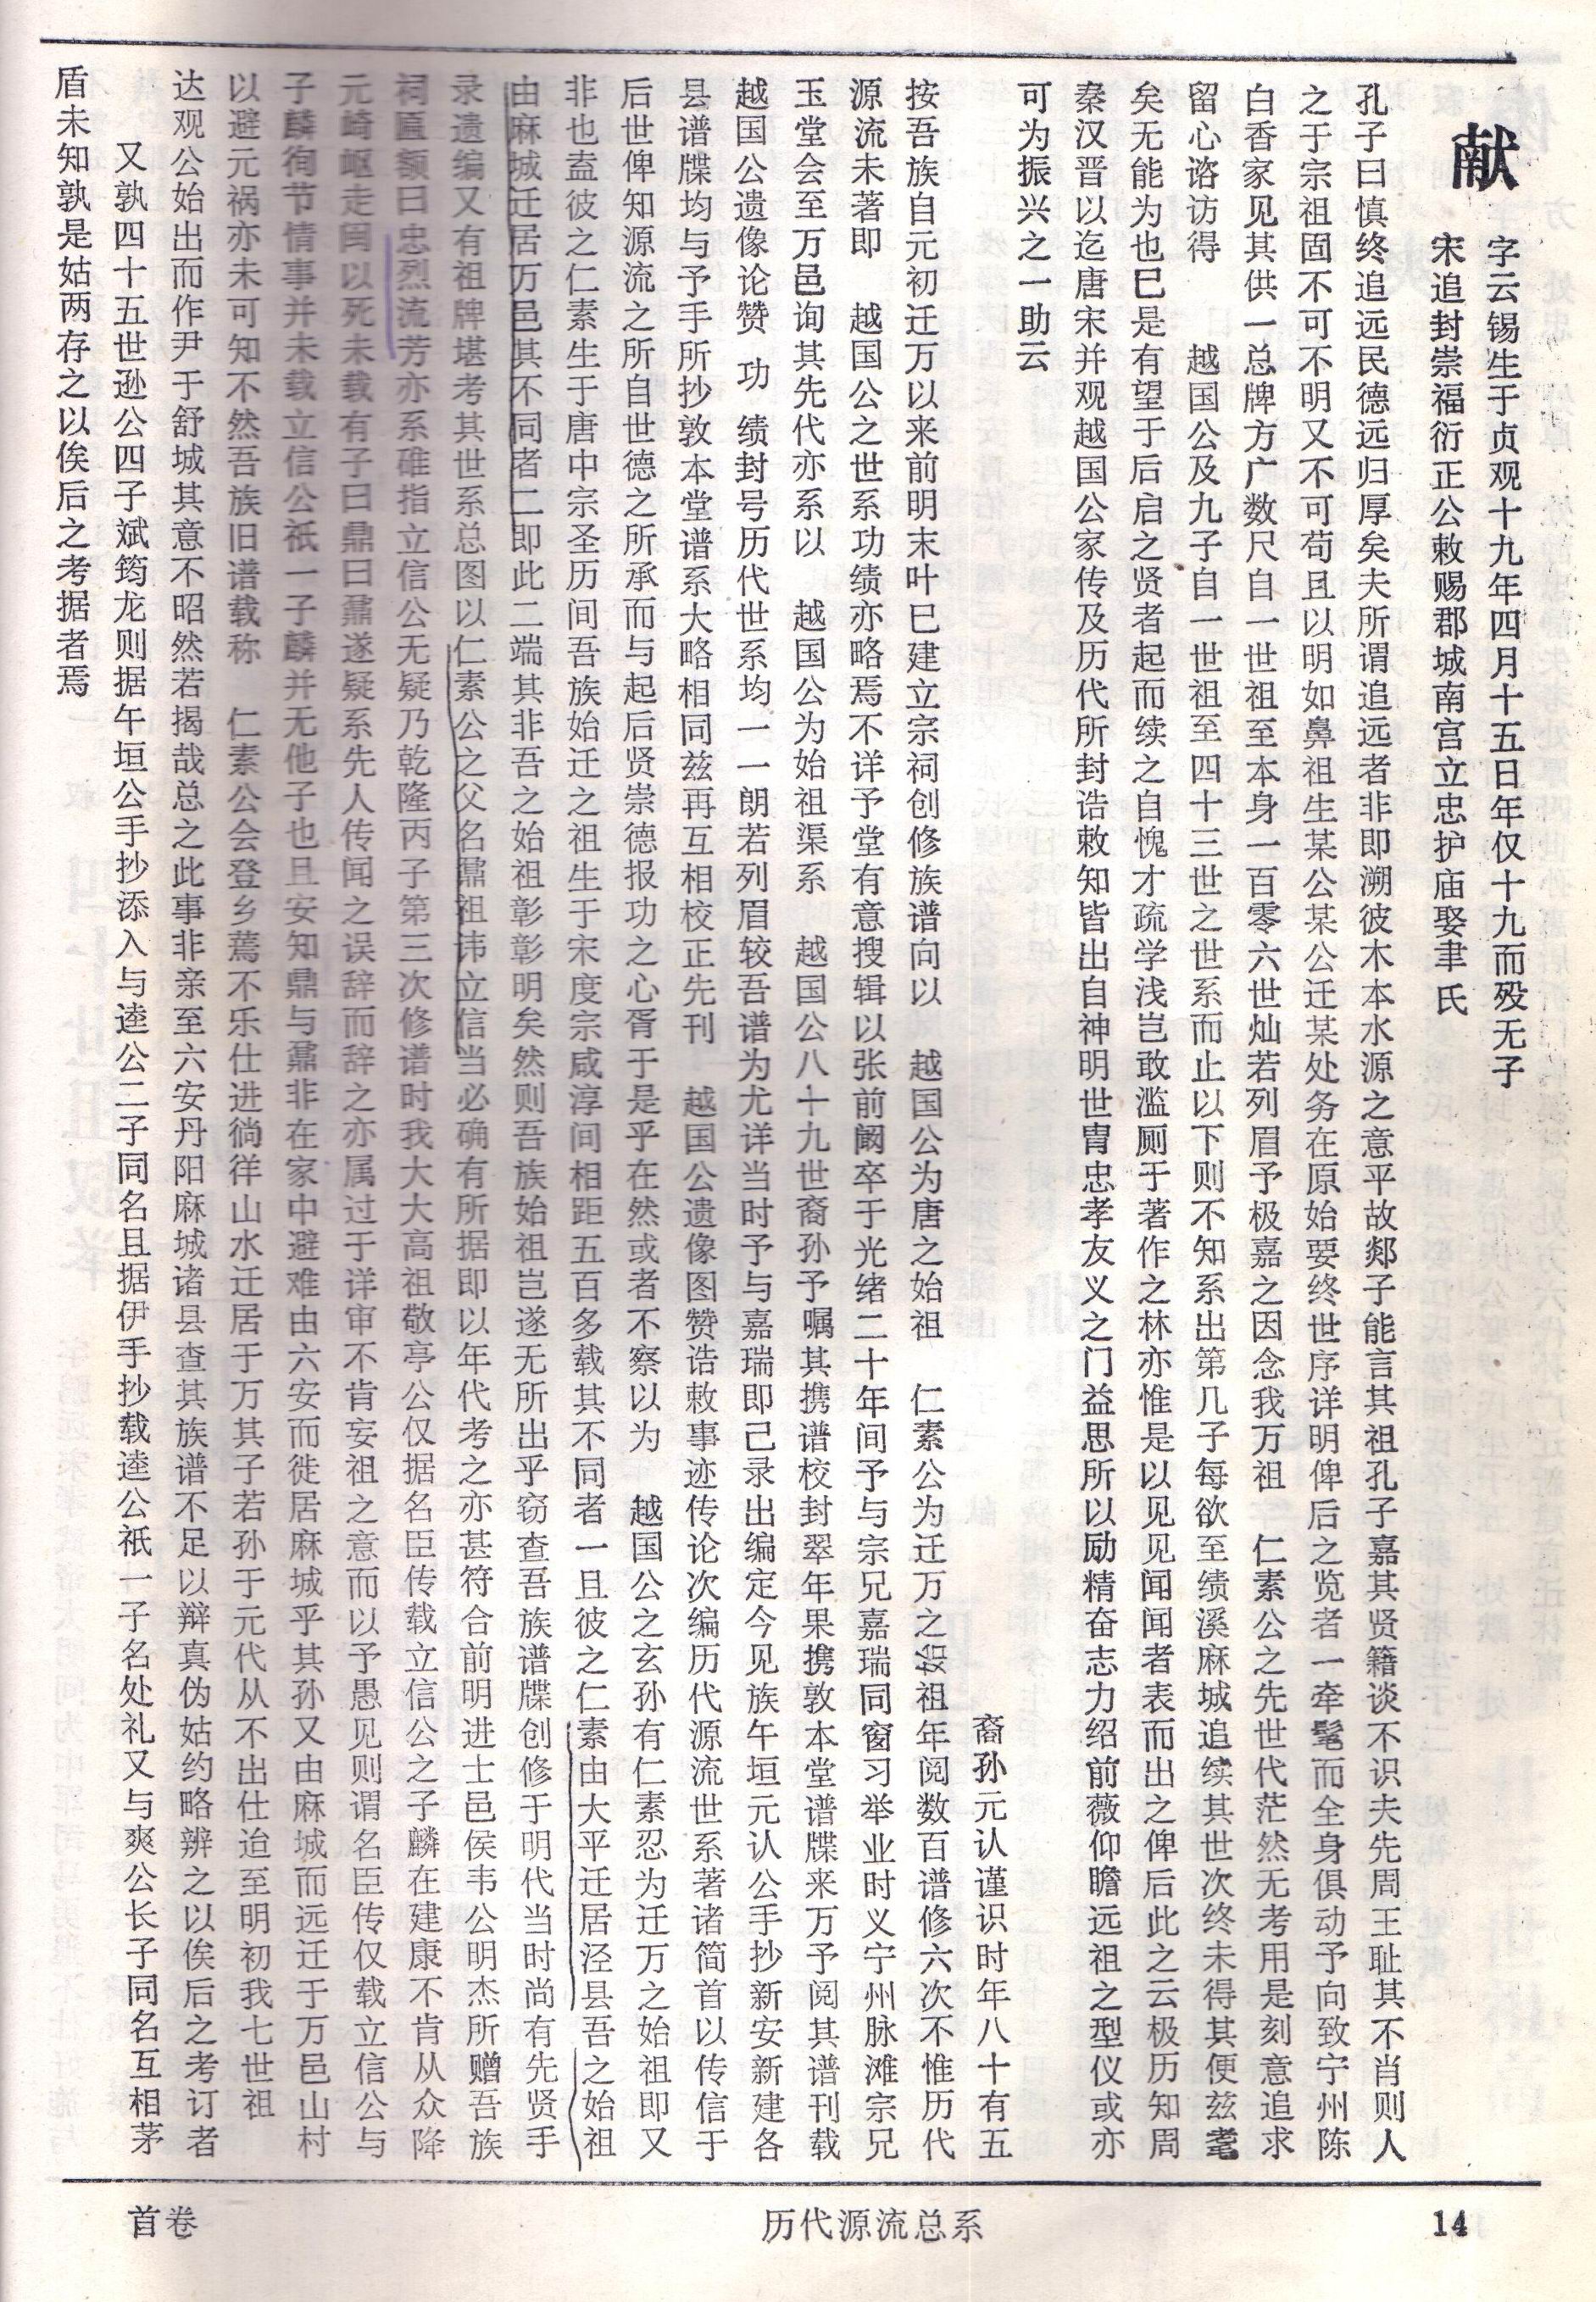 献
字云锡生于贞观十九年四月十五日年仅十九而殁无子
宋追封崇福衍正公敕赐郡城南宫立忠护庙娶聿氏
孔子曰慎终追远民德远归厚矣夫所谓追远者非即溯彼木本水源之意乎故郯子能言其祖孔子嘉其贤籍谈不识夫先周王耻其不肖则人
之于宗祖固不可不明又不可苟且以明如鼻祖生某公某公迁某处务在原始要终世序详明俾后之览者一牵髦而全身俱动予向致宁州陈
白香家见其供一总牌方广数尺自一世祖至本身一百零六世灿若列眉予极嘉之因念我万祖 仁素公之先世代茫然无考用是刻意追求
留心谘访得 越国公及九子自一世祖至四十三世之世系而止以下则不知系出第几子每欲至绩溪麻城追续其世次终未得其便兹耄
矣无能为也巳是有望于后启之贤者起而续之自愧才疏学浅岂敢滥厕于著作之林亦惟是以见见闻闻者表而出之俾后此之云极历知周
秦汉晋以迄唐宋并观越国公家传及历代所封诰敕知皆出自神明世胄忠孝友义之门益思所以励精奋志力绍前薇仰瞻远祖之型仪或亦
可为振兴之一助云
裔孙元认谨识时年八十有五
按吾族自元初迁万以来前明末叶巳建立宗祠创修族谱向以 越国公为唐之始祖 仁素公为迁万之祖年阅数百谱修六次不惟历代
源流未著即 越国公之世系功绩亦略焉不详予堂有意搜辑以张前阚卒于光绪二十年间予与宗兄嘉瑞同窗习举业时义宁州脉滩宗兄
玉堂会至万邑询其先代亦系以 越国公为始祖渠系 越国公八十九世裔孙予嘱其携谱校封翠年果携敦本堂谱牒来万予阅其谱刊载
越国公遗像论赞 功 绩封号历代世系均一一朗若列眉较吾谱为尤详当时予与嘉瑞即己录出编定今见族午垣元认公手抄新安新建各
县谱牒均与予手所抄敦本堂谱系大略相同兹再互相校正先刊 越国公遗像图赞诰敕事迹传论次编历代源流世系著诸简首以传信于
后世俾知源流之所自世德之所承而与起后贤崇德报功之心胥于是乎在然或者不察以为 越国公之玄孙有仁素忍为迁万之始祖即又
非也盍彼之仁素生于唐中宗圣历间吾族始迁之祖生于宋度宗咸淳间相距五百多载其不同者一且彼之仁素由大平迁居泾县吾之始祖
由麻城迁居万邑其不同者二即此二端其非吾之始祖彰彰明矣然则吾族始祖岂遂无所出乎窃查吾族谱牒创修于明代当时尚有先贤手
录遗编又有祖牌堪考其世系总图以仁素公之父名鼐祖讳立信当必确有所据即以年代考之亦甚符合前明进士邑侯韦公明杰所赠吾族
祠匾额曰忠烈流芳亦系碓指立信公无疑乃乾隆丙子第三次修谱时我大大高祖敬亭公仅据名臣传载立信公之子麟在建康不肯从众降
元崎岖走闽以死未载有子曰鼎曰鼐遂疑系先人传闻之误辞而辞之亦属过于详审不肯妄祖之意而以予愚见则谓名臣传仅载立信公与
子麟徇节情事并未载立信公祇一子麟并无他子也且安知鼎与鼐非在家中避难由六安而徙居麻城乎其孙又由麻城而远迁于万邑山村
以避元祸亦未可知不然吾族旧谱载称 仁素公会登乡薦不乐仕进徜徉山水迁居于万其子若孙于元代从不出仕迨至明初我七世祖
达观公始出而作尹于舒城其意不昭然若揭哉总之此事非亲至六安丹阳麻城诸县查其族谱不足以辩真伪姑约略辨之以俟后之考订者
又孰四十五世逊公四子斌筠龙则据午垣公手抄添入与逵公二子同名且据伊手抄载逵公祇一子名处礼又与爽公长子同名互相茅
盾未知孰是姑两存之以俟后之考据者焉
首卷
历代源流总系
14